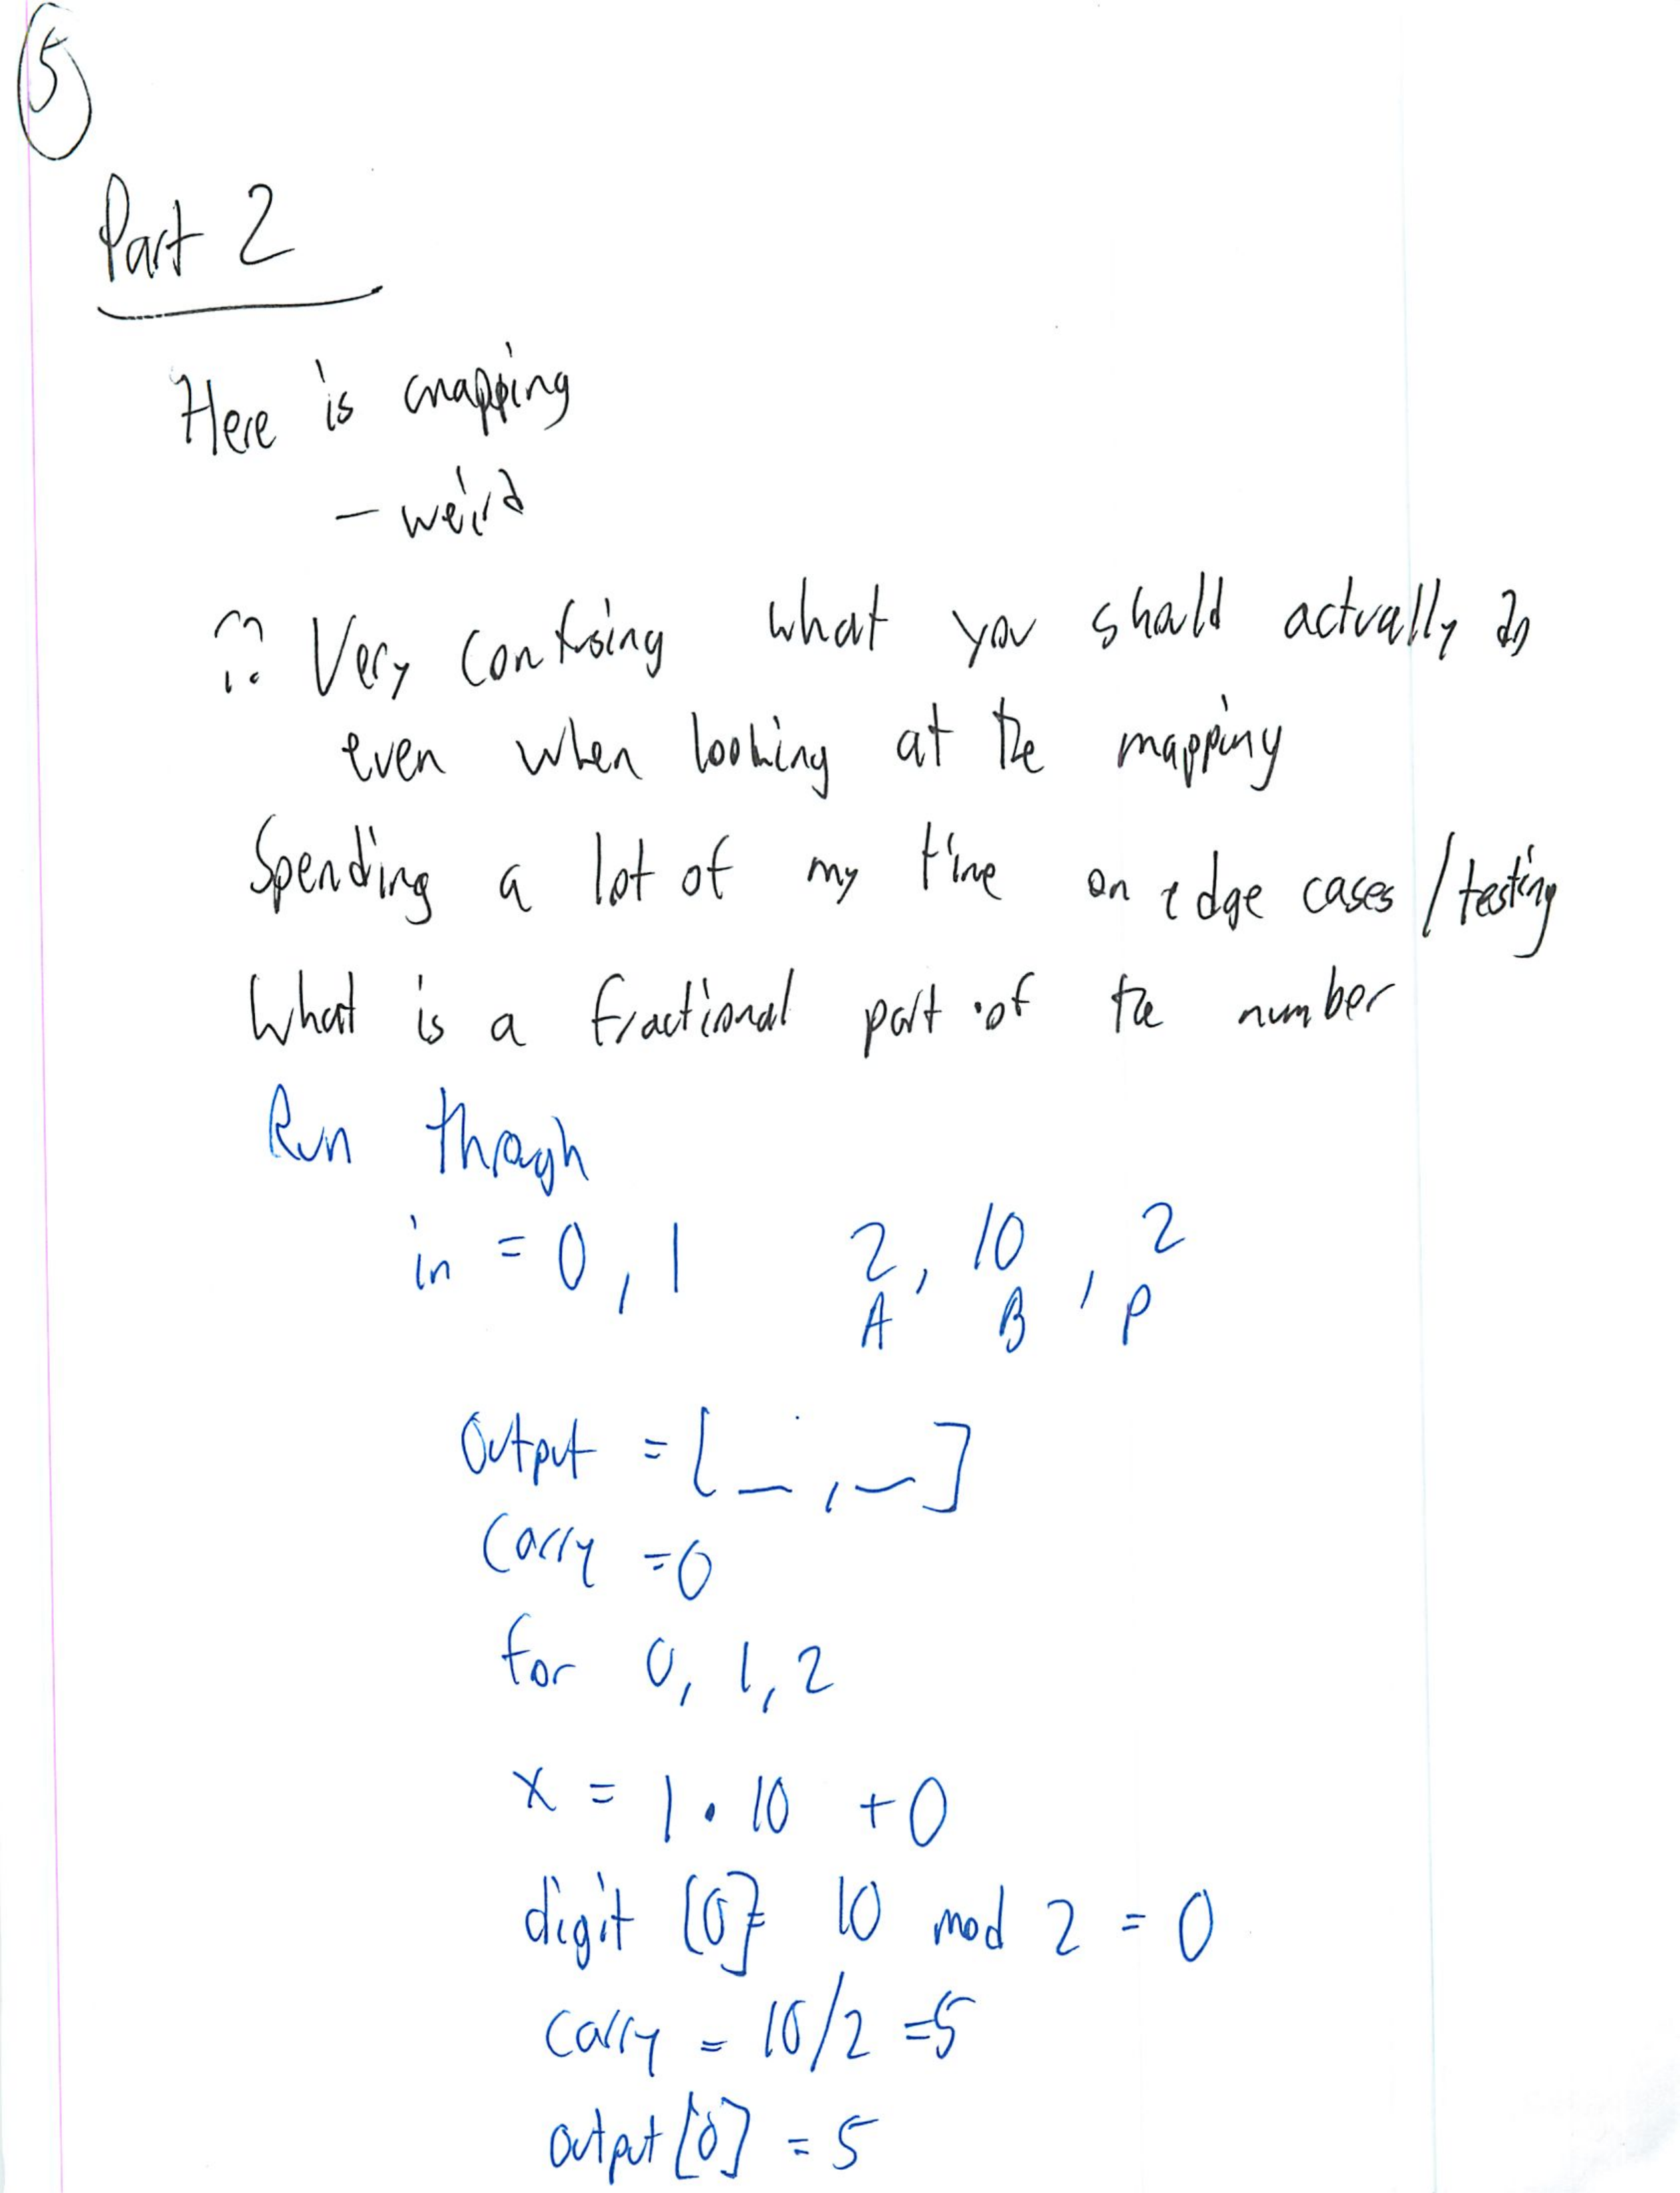 5
Part 2
Here is mapping
- weird
?? Very confusing what you should actually do
even when looking at the mapping
Spending a lot of my time on edge cases / testing
What is a fractional part of the number
Run through
in = 0, 1 2, 10, 2
A B P
Output = [_, _]
Carry = 0
for 0, 1, 2
x = 1 • 10 + 0
digit [0] = 10 mod 2 = 0
carry = 10/2 = 5
output [0] = 5